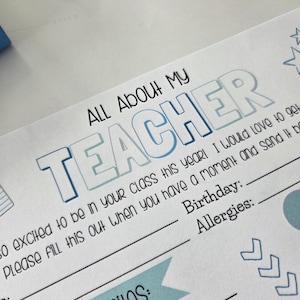 ALL ABOUT MY
TEACHER
so excited to be in your class this year! I would love to get
Please fill this out when you have a moment and send it
Birthday:
Allergies: